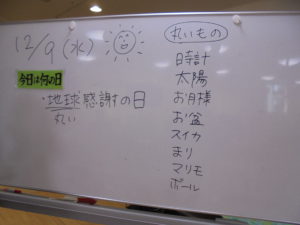 12/9(水)
今日は何の日
・地球感謝の日
丸い
丸いもの
日時計
太陽
お月様
お盆
スイカ
まり
マリモ
ボール